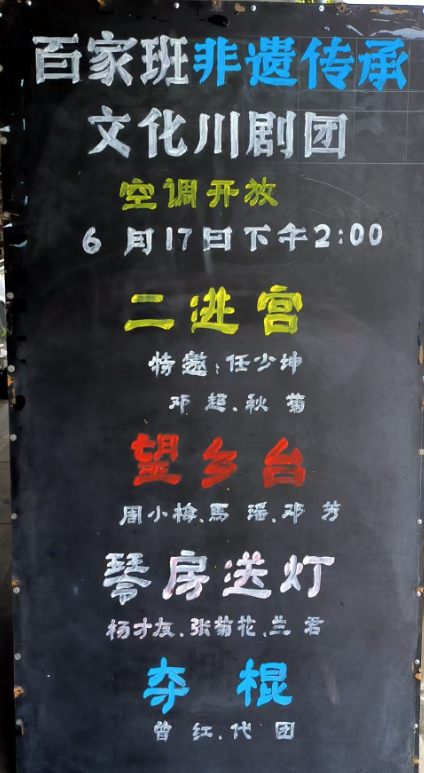 百家班非遗传承
文化川剧团
空调开放
6月17日下午2:00
二进宫
特邀:任少坤
邓超.秋菊
望乡台
周小梅.馬瑶.邓芳
琴房送灯
杨才友.张菊花.兰君
夺棍
曾红.代团